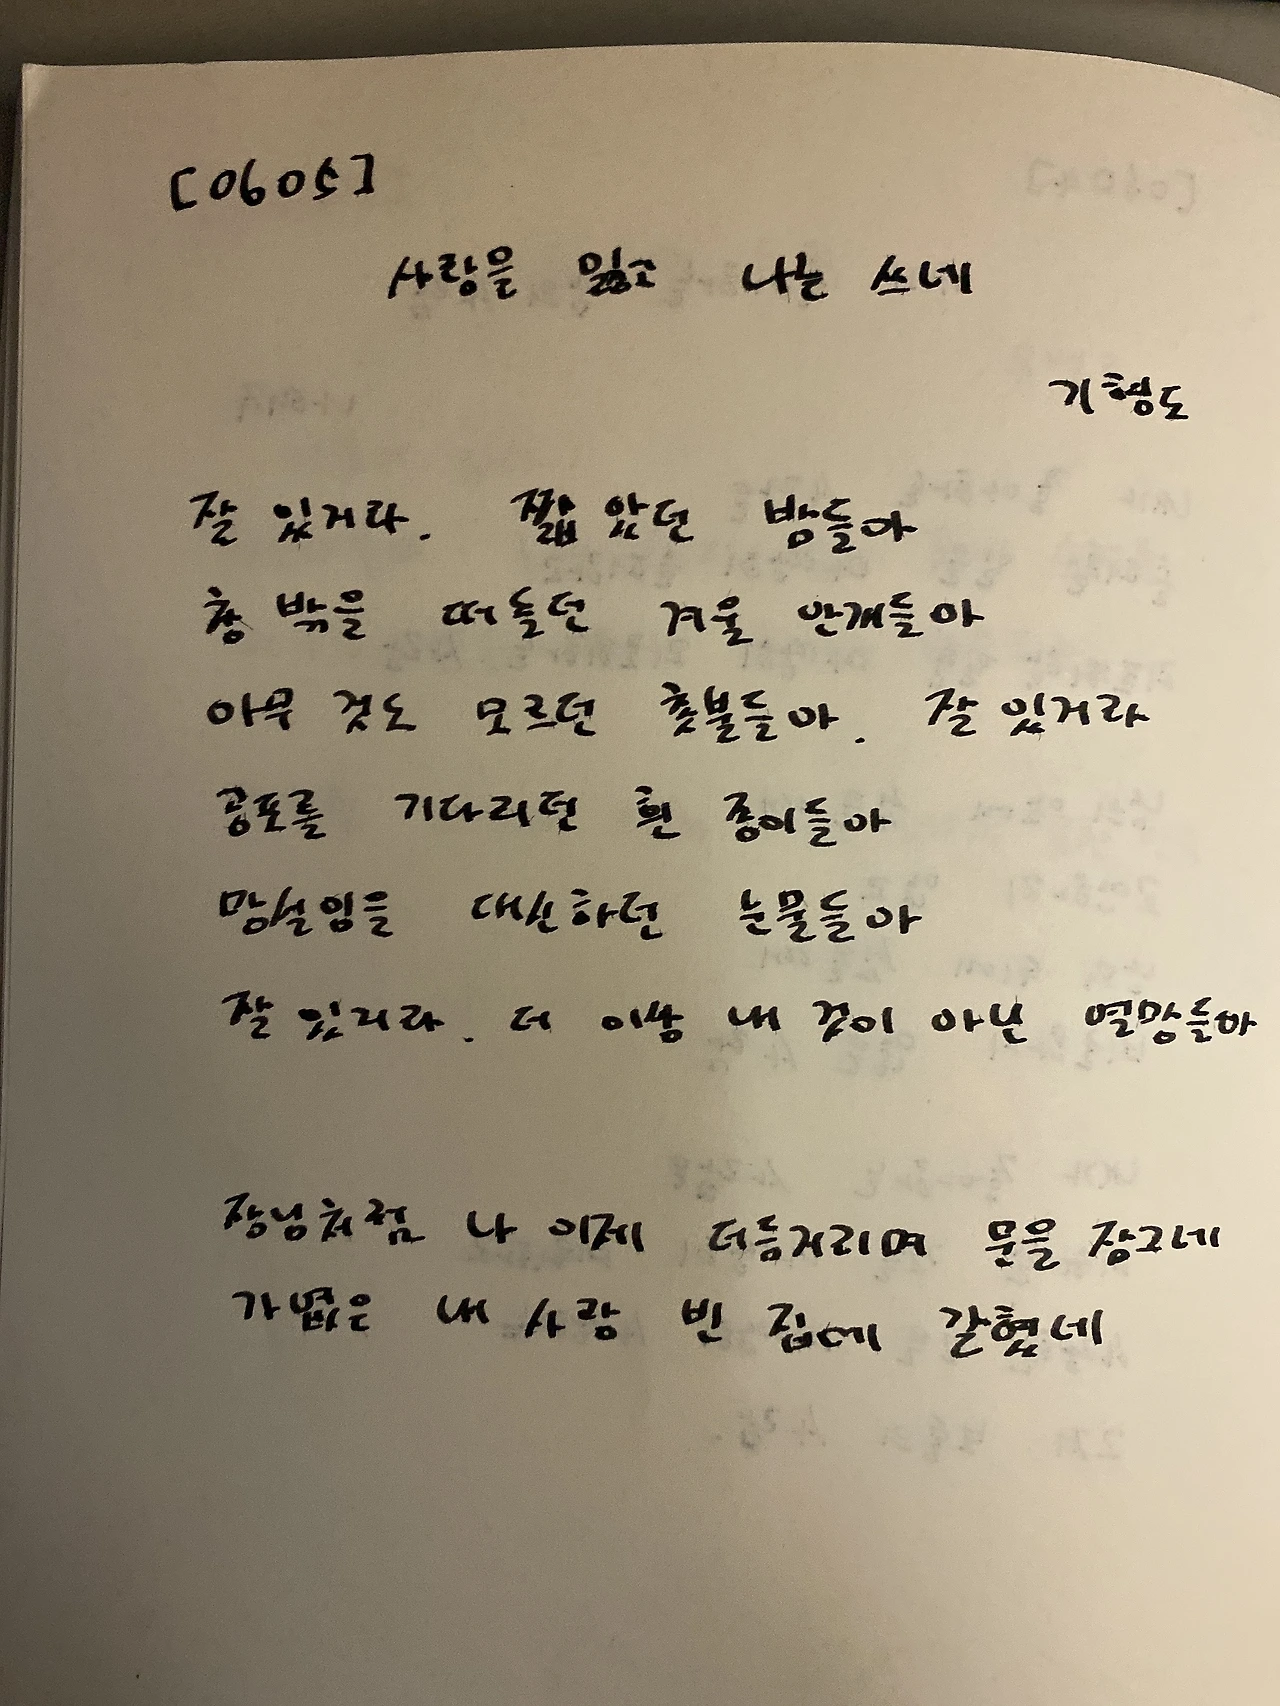 [0605]
사랑을 잃고 나는 쓰네
기형도
잘 있거라. 짧았던 밤들아
창 밖을 떠돌던 겨울 안개들아
아무 것도 모르던 촛불들아. 잘 있거라
공포를 기다리던 흰 종이들아
망설임을 대신하던 눈물들아
잘 있거라. 더 이상 내 것이 아닌 열망들아
장님처럼 나 이제 더듬거리며 문을 잠그네
가엾은 내 사랑 빈 집에 갇혔네